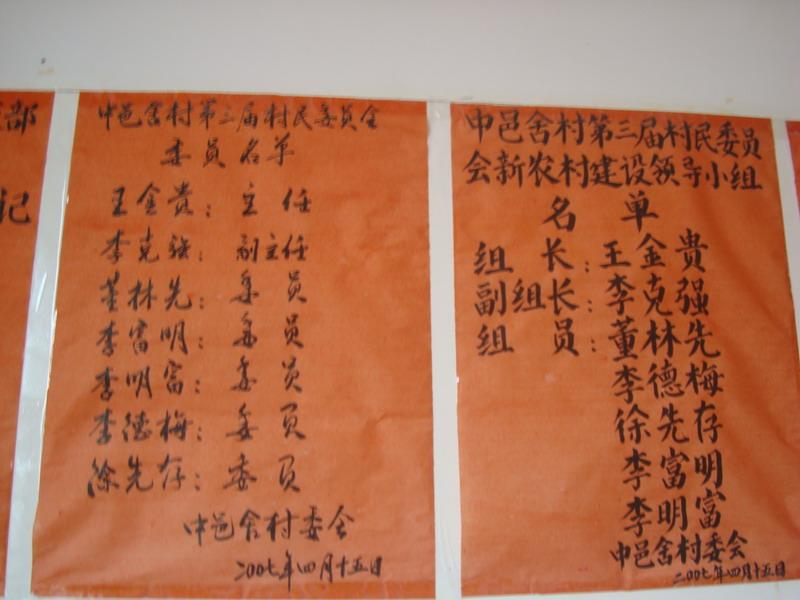 部
记
中邑舍村第三届村民委员会
委员名单
王金贵：主任
李克强：副主任
董林先：委员
李富明：委员
李明富：委员
李德梅：委员
徐先存：委员
中邑舍村委会
二00七年四月十五日
中邑舍村第三届村民委员
会新农村建设领导小组
名单
组长：王金贵
副组长：李克强
组员：董林先
李德梅
徐先存
李富明
李明富
中邑舍村委会
二00七年四月十五日